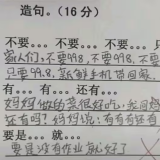 造句。(16分)
不要…不要…不要…
敌人们,不要998,不要998,
只要99.8,手机带回
有…有…还有…
妈妈做的菜很好吃,我问
还有吗?妈妈说:有有有还有
要是…就…
要是没有作业就好了